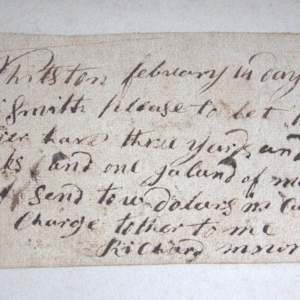 february 14 day
Smith please to let
have three yards and
and one galand of
send tow dolars in
Charge tother to me
Richard